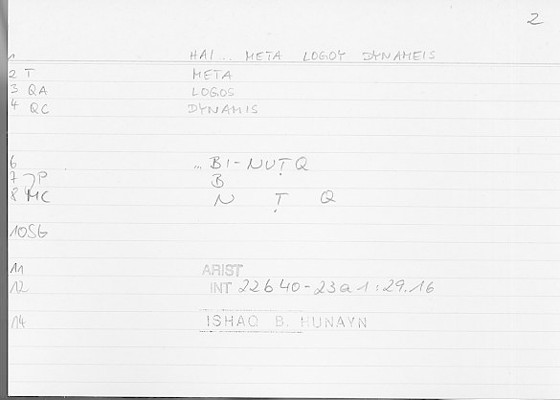 2
1 HAI... META LOGOY DYNAMEIS
2 T META
3 QA LOGOS
4 QC DYNAMIS
6 ... BI-NUṬQ
7 P B
8 MC N Ṭ Q
10 SG
11 ARIST
12 INT 22b40-23a1:29.16
14 ISHAQ B. HUNAYN